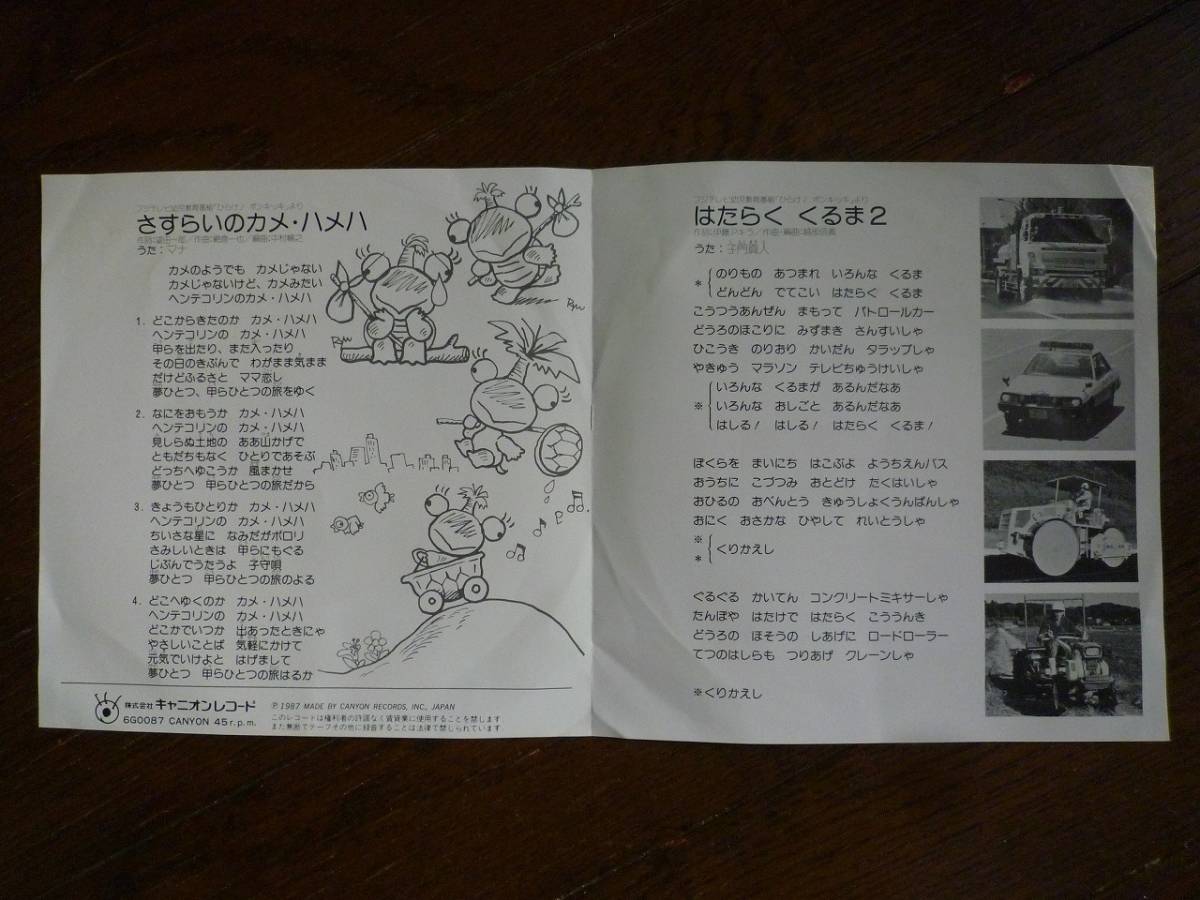 フジテレビ幼児教育番組「ひらけ！ ポンキッキ」より
さすらいのカメ・ハメハ
うた：マナ
カメのようでも カメじゃない
カメじゃないけど、カメみたい
ヘンテコリンのカメ・ハメハ
1. どこからきたのか カメ・ハメハ
ヘンテコリンの カメ・ハメハ
甲らを出たり、また入ったり
その日のきぶんで わがまま気まま
だけどふるさと ママ恋し
夢ひとつ、甲らひとつの旅をゆく
2. なにをおもうか カメ・ハメハ
ヘンテコリンの カメ・ハメハ
見しらぬ土地の ああ山かげで
ともだちもなく ひとりであそぶ
どっちへゆこうか 風まかせ
夢ひとつ 甲らひとつの旅だから
3. きょうもひとりか カメ・ハメハ
ヘンテコリンの カメ・ハメハ
ちいさな星に なみだがポロリ
さみしいときは 甲らにもぐる
じぶんでうたうよ 子守唄
夢ひとつ 甲らひとつの旅のよる
4. どこへゆくのか カメ・ハメハ
ヘンテコリンの カメ・ハメハ
どこかでいつか 出あったときにゃ
やさしいことば 気軽にかけて
元気でいけよと はげまして
夢ひとつ 甲らひとつの旅はるか
株式会社 キャニオンレコード
6G0087 CANYON 45r.p.m.
Ⓟ1987 MADE BY CANYON RECORDS, INC., JAPAN
このレコードは権利者の許諾なく賃貸業に使用することを禁じます
また無断でテープその他に録音することは法律で禁じられています
フジテレビ幼児教育番組「ひらけ！ ポンキッキ」より
はたらく くるま2
うた：子門真人
* のりもの あつまれ いろんな くるま
どんどん でてこい はたらく くるま
こうつうあんぜん まもって パトロールカー
どうろのほこりに みずまき さんすいしゃ
ひこうき のりおり かいだん タラップしゃ
やきゅう マラソン テレビちゅうけいしゃ
いろんな くるまが あるんだなあ
※ いろんな おしごと あるんだなあ
はしる！ はしる！ はたらく くるま！
ぼくらを まいにち はこぶよ ようちえんバス
おうちに こづつみ おとどけ たくはいしゃ
おひるの おべんとう きゅうしょくうんぱんしゃ
おにく おさかな ひやして れいとうしゃ
※
* くりかえし
ぐるぐる かいてん コンクリートミキサーしゃ
たんぼや はたけで はたらく こううんき
どうろの ほそうの しあげに ロードローラー
てつのはしらも つりあげ クレーンしゃ
※くりかえし